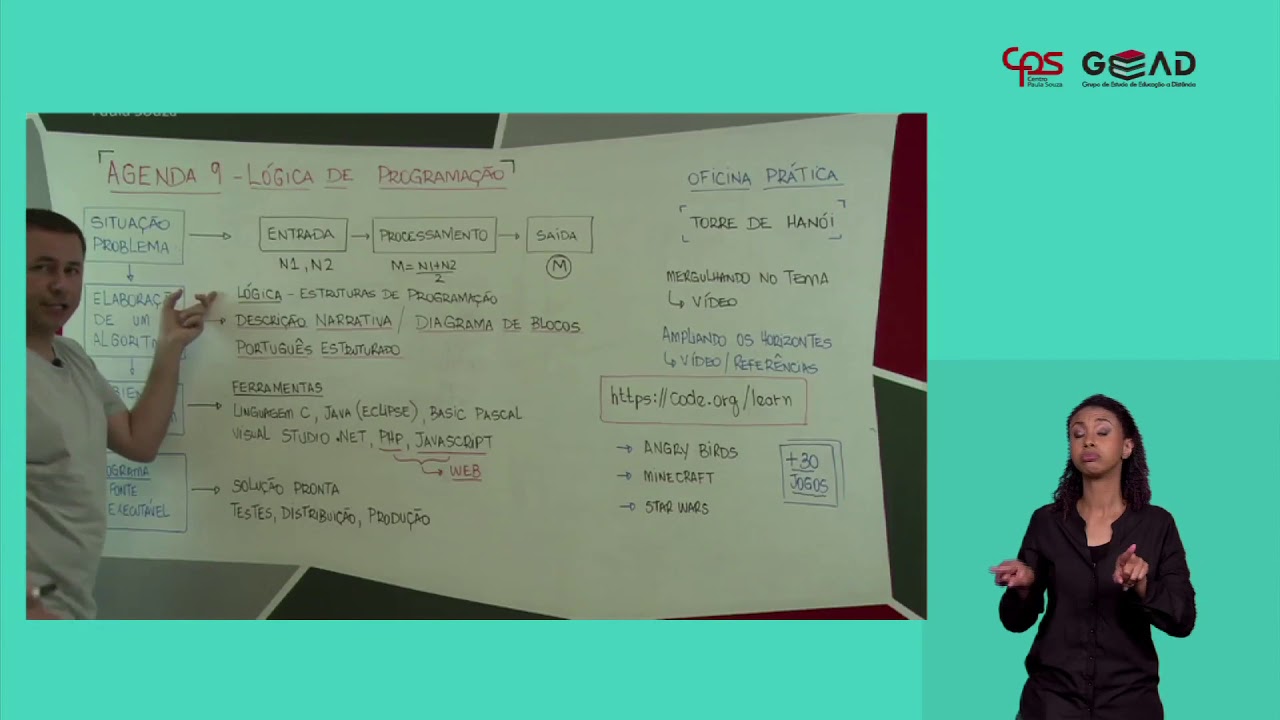 CPS
Centro
Paula Souza
GEEAD
Grupo de Estudo de Educação a Distância
Paula Souza
AGENDA 9 - LÓGICA DE PROGRAMAÇÃO
SITUAÇÃO
PROBLEMA
ENTRADA
PROCESSAMENTO
SAÍDA
N1, N2
M = N1+N2
2
M
LÓGICA - ESTRUTURAS DE PROGRAMAÇÃO
DE UM
DESCRIÇÃO NARRATIVA / DIAGRAMA DE BLOCOS
PORTUGUÊS ESTRUTURADO
FERRAMENTAS
LINGUAGEM C, JAVA (ECLIPSE), BASIC PASCAL
VISUAL STUDIO .NET, PHP, JAVASCRIPT
WEB
FONTE
EXECUTÁVEL
SOLUÇÃO PRONTA
TESTES, DISTRIBUIÇÃO, PRODUÇÃO
OFICINA PRÁTICA
TORRE DE HANÓI
MERGULHANDO NO TEMA
VÍDEO
AMPLIANDO OS HORIZONTES
VÍDEO / REFERÊNCIAS
https://code.org/learn
ANGRY BIRDS
MINECRAFT
STAR WARS
+30
JOGOS